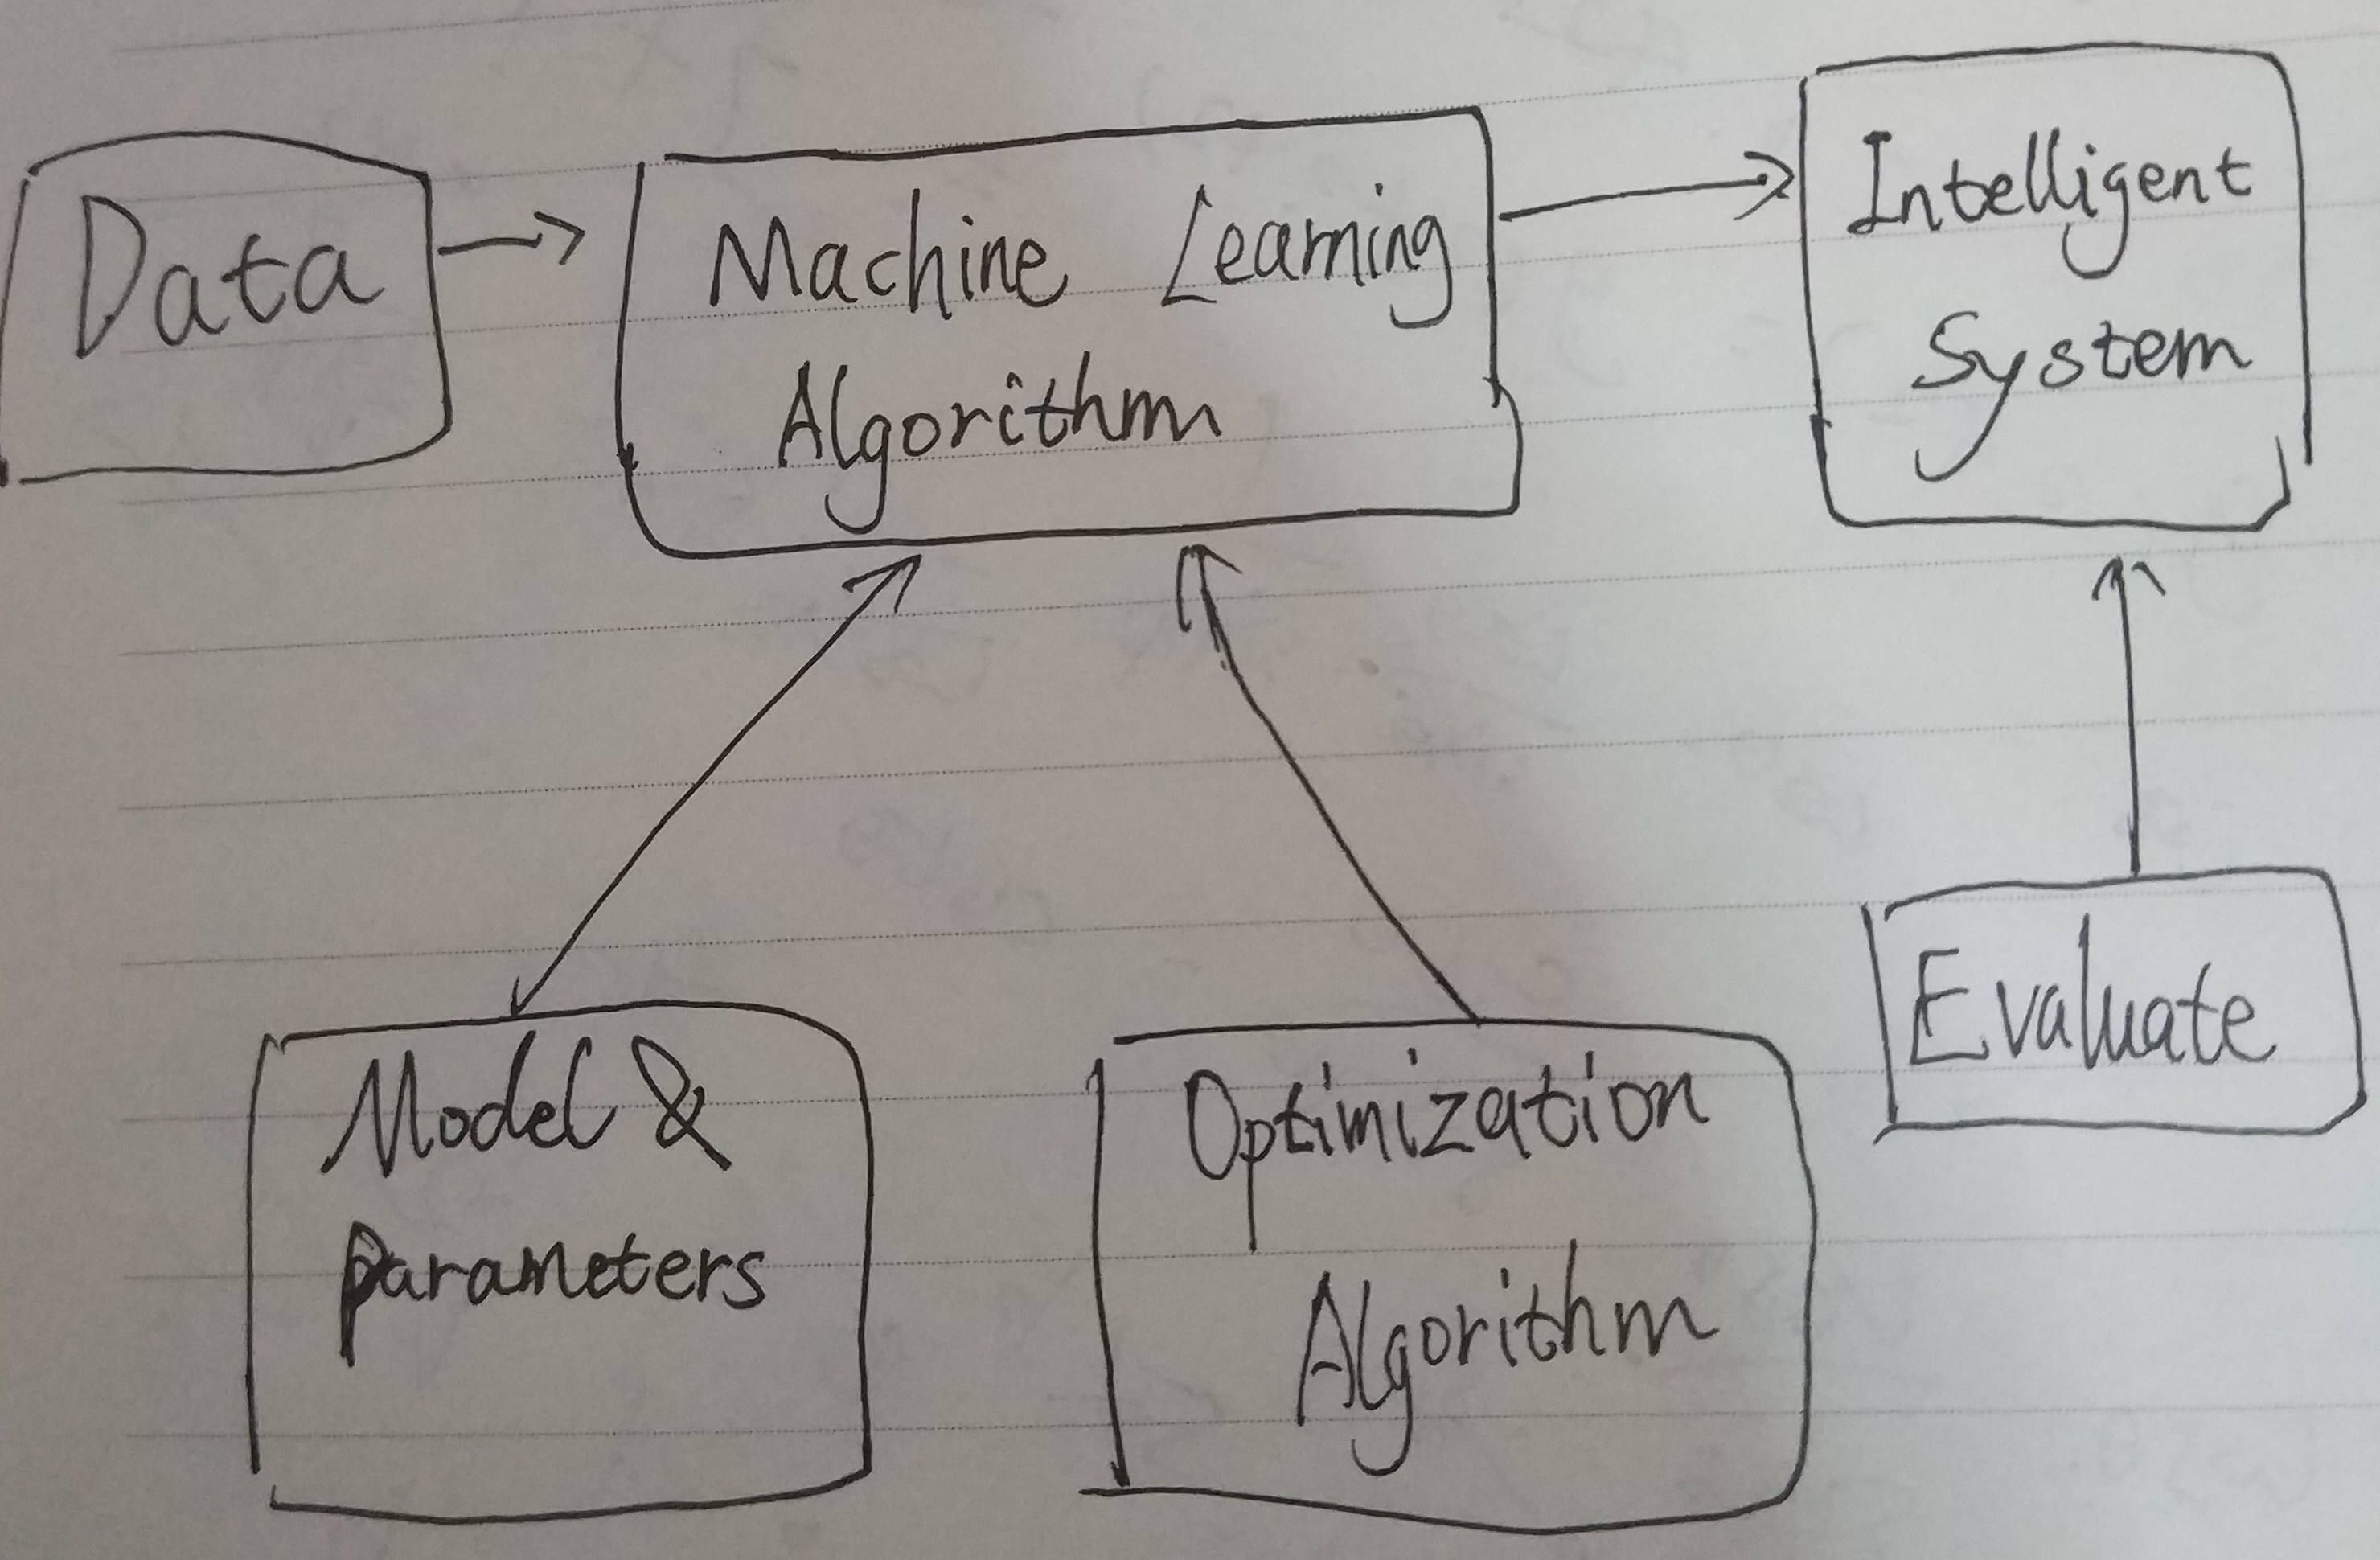 Data
Machine Learning
Algorithm
Intelligent
System
Model &
parameters
Optimization
Algorithm
Evaluate